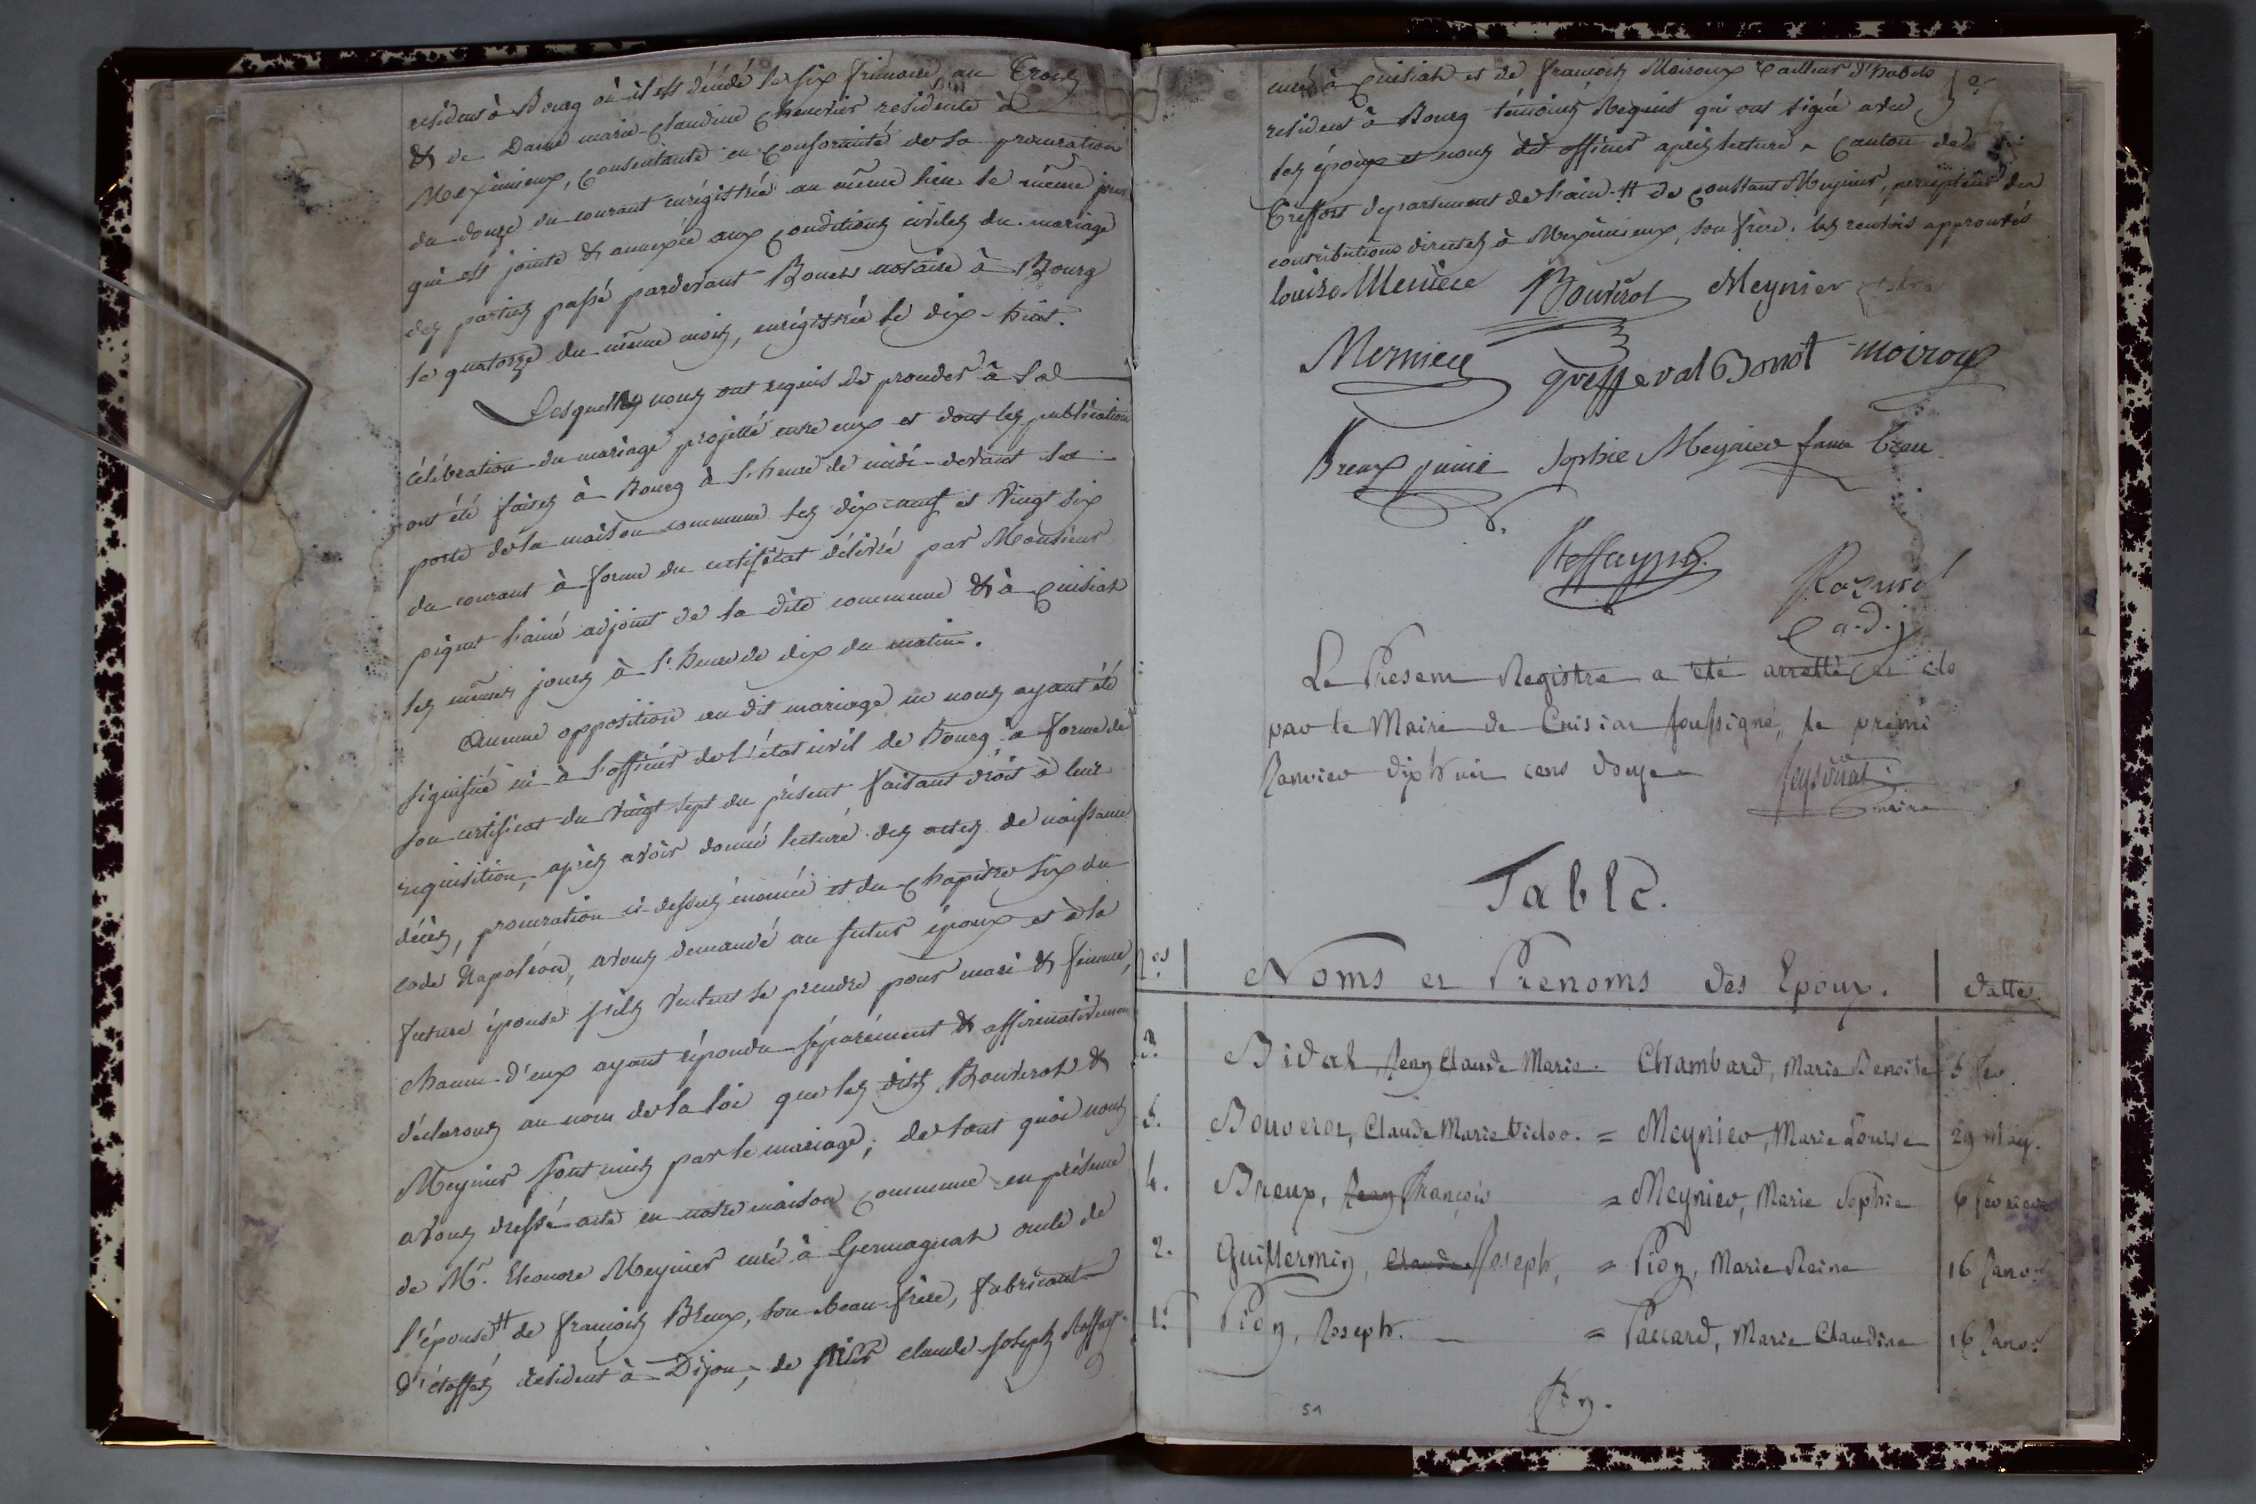 résident à Bourg où il est décédé le six frimaire an trois
& de Dame marie Claudine Chevrier residente à
Meximieux, Consentante en Conformité de la procuration
du douze du courant enrégistrée au même lieu le même jour
qui est jointe & annexée aux Conditions civiles du mariage
des parties passé pardevant notaire à Bourg
le quatorze du même mois, enrégistrée le dix-huit.
Lesquelles nous ont requis de proceder à la
célébration du mariage projetté entre eux et dont les publications
ont été faites à Bourg à l'heure de midi devant la
porte de la maison commune les dix neuf et vingt six
du courant à forme du certificat délivré par Monsieur
l'ainé adjoint de la dite commune & à Cuisiat
les mêmes jours à l'heure de dix du matin.
Aucune opposition au dit mariage ne nous ayant été
signifiée ni à l'officier de l'état civil de Bourg à forme de
son certificat du vingt sept du présent faisant droit à leur
requisition, après avoir donné lecture des actes de naissance
décès, procuration ci-dessus énoncée et du Chapitre six du
code Napoléon, avons demandé au futur époux et à la
future épouse s'ils veulent se prendre pour mari & femme,
chacun d'eux ayant répondu séparément & affirmativement
déclarons au nom de la loi que les dits Bouverot &
Meynier sont unis par le mariage; de tout quoi nous
avons dressé acte en notre maison Commune en présence
de Mr. Eleonore Meynier curé à Germagnat oncle de
l'épouse # de françois Breux, son beau-frère, fabricant
d'étoffes résident à Dijon, de claude joseph
curé à Cuisiat et de françois Moiroux tailleur d'habits
resident à Bourg témoins requis qui ont signé avec
les époux et nous dit officier après lecture Canton de
Treffort departement de l'ain. # de Constant Meynier, percepteur des
contributions directes à Meximieux, son frère; les renvois approuvés
louise Meniere Bouverot Meynier
Bonot moiroux
Breux Sophie Meynier fame breu
a.d.j
Le Present Registre a été arretté et clo
par le Maire de Cuisiat soussigné, le premi
Janvier dix huit cens douze
maire
Table.
Nos Noms et Prenoms des Epoux. dattes
3. Bidal Jean Claude Marie. Chambard, Marie Benoite 5 fev.
5. Bouverot, Claude Marie Victor. = Meynier, Marie Louise 29 May.
4. Breux, Jean François = Meynier, Marie Sophie 6 fevrier
2. Guillermin, Claude Joseph, = Pion, Marie Reine 16 Janv.
1. Pion, Joseph. = Paccard, Marie Claudine 16 Janv.
Fin.
51